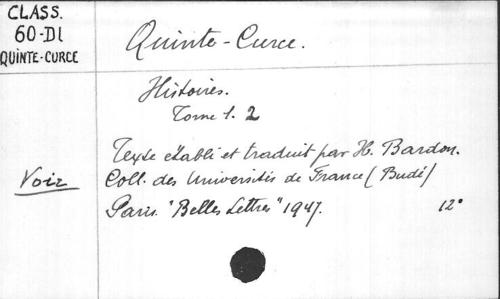 CLASS.
60-D1
QUINTE-CURCE
Quinte-Curce.
Histoires.
Tome 1. 2
Texte établi et traduit par H. Bardon.
Voir Coll. des Universités de France (Budé)
Paris. "Belles Lettres" 1947. 12°